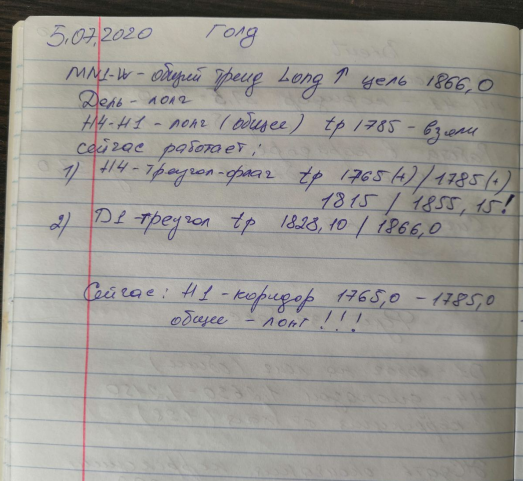 5.07.2020 Голд
MN1-W - общий тренд Long ↑ цель 1866,0
День - лонг
H4-H1 - лонг (общее) tp 1785 - взяли
сейчас работает:
1) H4 - треугол-флаг tp 1765(+) / 1785(+)
1815 / 1855,15!
2) D1 треугол tp 1828,10 / 1866,0
Сейчас: H1 - коридор 1765,0 - 1785,0
общее - лонг!!!